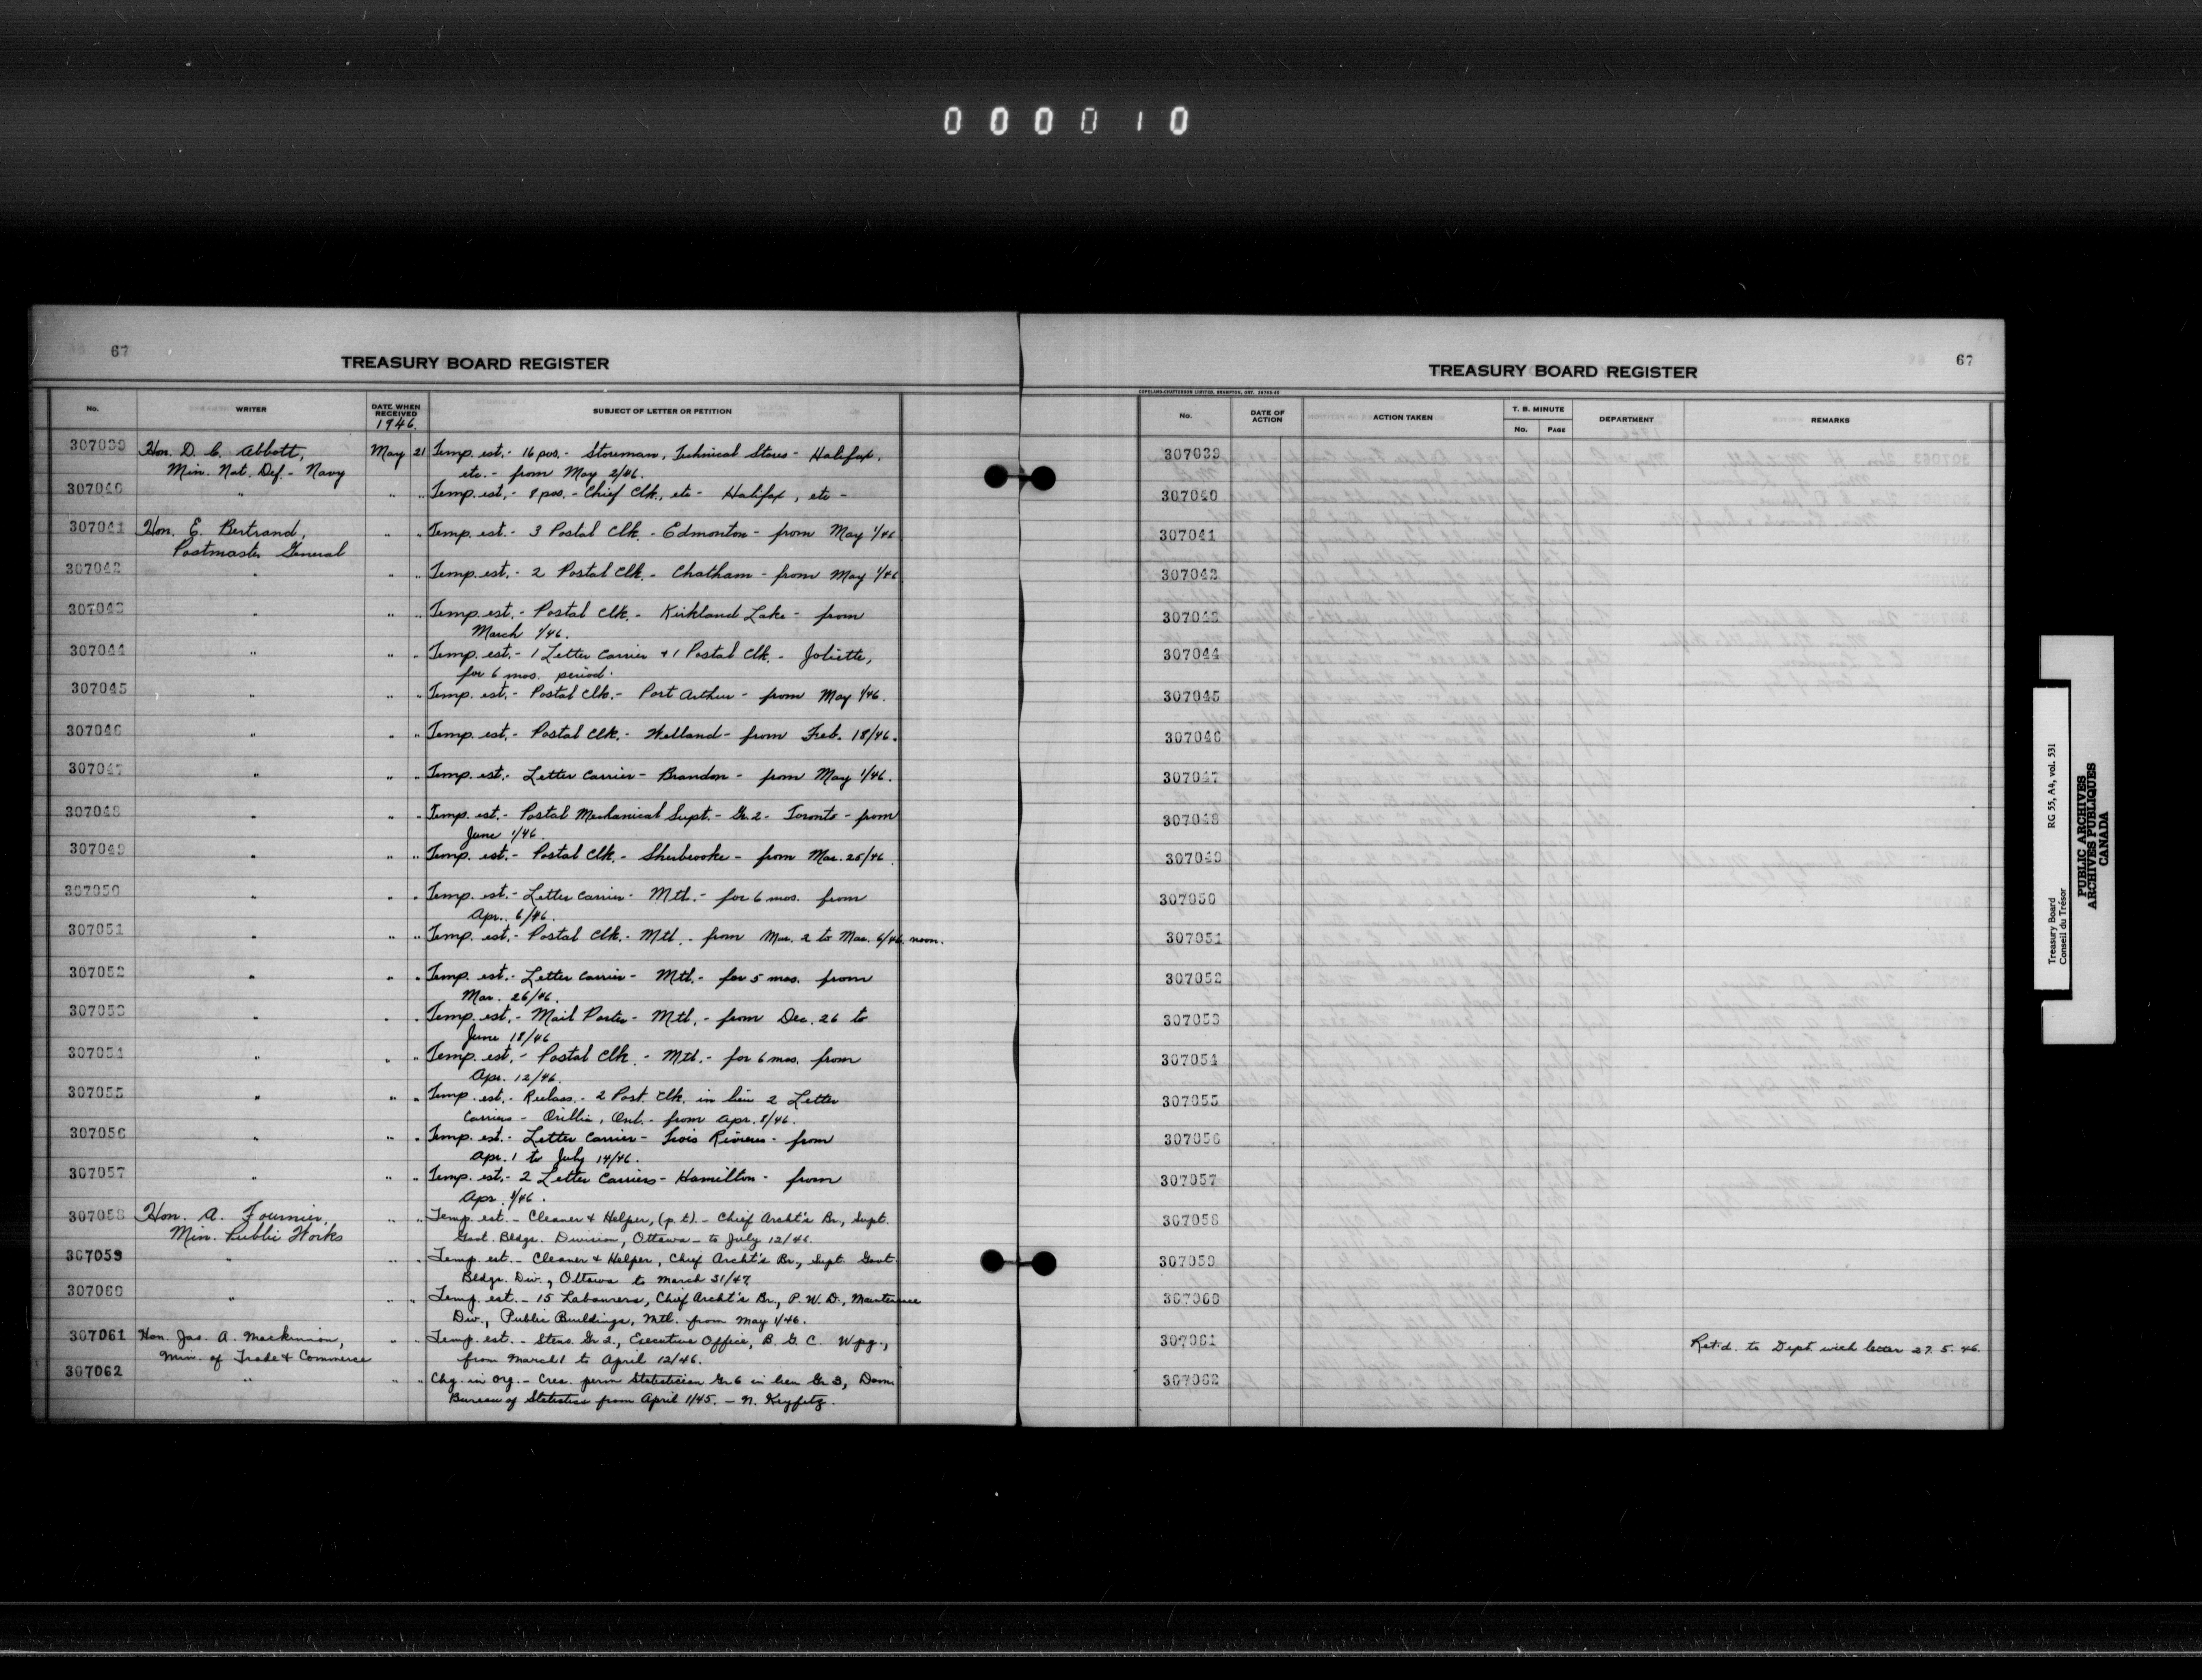 000010
67
TREASURY BOARD REGISTER
No. WRITER DATE WHEN RECEIVED SUBJECT OF LETTER OR PETITION
1946.
307039 Hon. D. C. Abbott, May 21 Temp. est. - 16 pos. - Storeman, Technical Stores - Halifax,
Min. Nat. Def. - Navy etc. - from May 2/46.
307040 " " " Temp. est. - 8 pos. - Chief Clk., etc - Halifax, etc -
307041 Hon. E. Bertrand, " " Temp. est. - 3 Postal Clk. - Edmonton - from May 1/46
Postmaster General
307042 " " " Temp. est. - 2 Postal Clk. - Chatham - from May 1/46
307043 " " " Temp. est. - Postal Clk. - Kirkland Lake - from
March 1/46.
307044 " " " Temp. est. - 1 Letter Carrier & 1 Postal Clk. - Joliette,
for 6 mos. period.
307045 " " " Temp. est. - Postal Clk. - Port Arthur - from May 1/46.
307046 " " " Temp. est. - Postal Clk. - Welland - from Feb. 18/46.
307047 " " " Temp. est. - Letter Carrier - Brandon - from May 1/46.
307048 " " " Temp. est. - Postal Mechanical Supt. - Gr. 2 - Toronto - from
June 1/46.
307049 " " " Temp. est. - Postal Clk. - Sherbrooke - from Mar. 25/46.
307050 " " " Temp. est. - Letter Carrier - Mtl. - for 6 mos. from
Apr. 6/46.
307051 " " " Temp. est. - Postal Clk. - Mtl. - from Mar. 2 to Mar. 6/46, noon.
307052 " " " Temp. est. - Letter Carrier - Mtl. - for 5 mos. from
Mar. 26/46.
307053 " " " Temp. est. - Mail Porter - Mtl. - from Dec. 26 to
June 18/46
307054 " " " Temp. est. - Postal Clk. - Mtl. - for 6 mos. from
Apr. 12/46.
307055 " " " Temp. est. - Reclass. - 2 Post. Clk. in lieu 2 Letter
Carriers - Orillia, Ont. - from Apr. 8/46.
307056 " " " Temp. est. - Letter Carrier - Trois Rivieres - from
Apr. 1 to July 14/46.
307057 " " " Temp. est. - 2 Letter Carriers - Hamilton - from
Apr. 1/46.
307058 Hon. A. Fournier, " " Temp. est. - Cleaner & Helper, (p.t) - Chief Archt's Br., Supt.
Min. Public Works Govt. Bldgs. Division, Ottawa - to July 12/46.
307059 " " " Temp. est. - Cleaner & Helper, Chief Archt's Br., Supt. Govt.
Bldgs. Div., Ottawa to March 31/47.
307060 " " " Temp. est. - 15 Labourers, Chief Archt's Br., P. W. D., Maintenance
Div., Public Buildings, Mtl. from May 1/46.
307061 Hon. Jas. A. Mackinnon, " " Temp. est. - Steno. Gr 2., Executive Office, B. G. C. Wpg.,
Min. of Trade & Commerce from March 1 to April 12/46.
307062 " " " Chg. in Org. - Crea. perm Statistician Gr 6 in lieu Gr 3, Dom.
Bureau of Statistics from April 1/45. - N. Keyfitz.
67
TREASURY BOARD REGISTER
COPELAND-CHATTERSON LIMITED, BRAMPTON, ONT.
No. DATE OF ACTION ACTION TAKEN T. B. MINUTE No. PAGE DEPARTMENT REMARKS
307039
307040
307041
307042
307043
307044
307045
307046
307047
307048
307049
307050
307051
307052
307053
307054
307055
307056
307057
307058
307059
307060
307061 Ret'd. to Dept with letter 27. 5. 46.
307062
Treasury Board RG 55, A4, vol. 531
Conseil du Trésor
PUBLIC ARCHIVES
ARCHIVES PUBLIQUES
CANADA